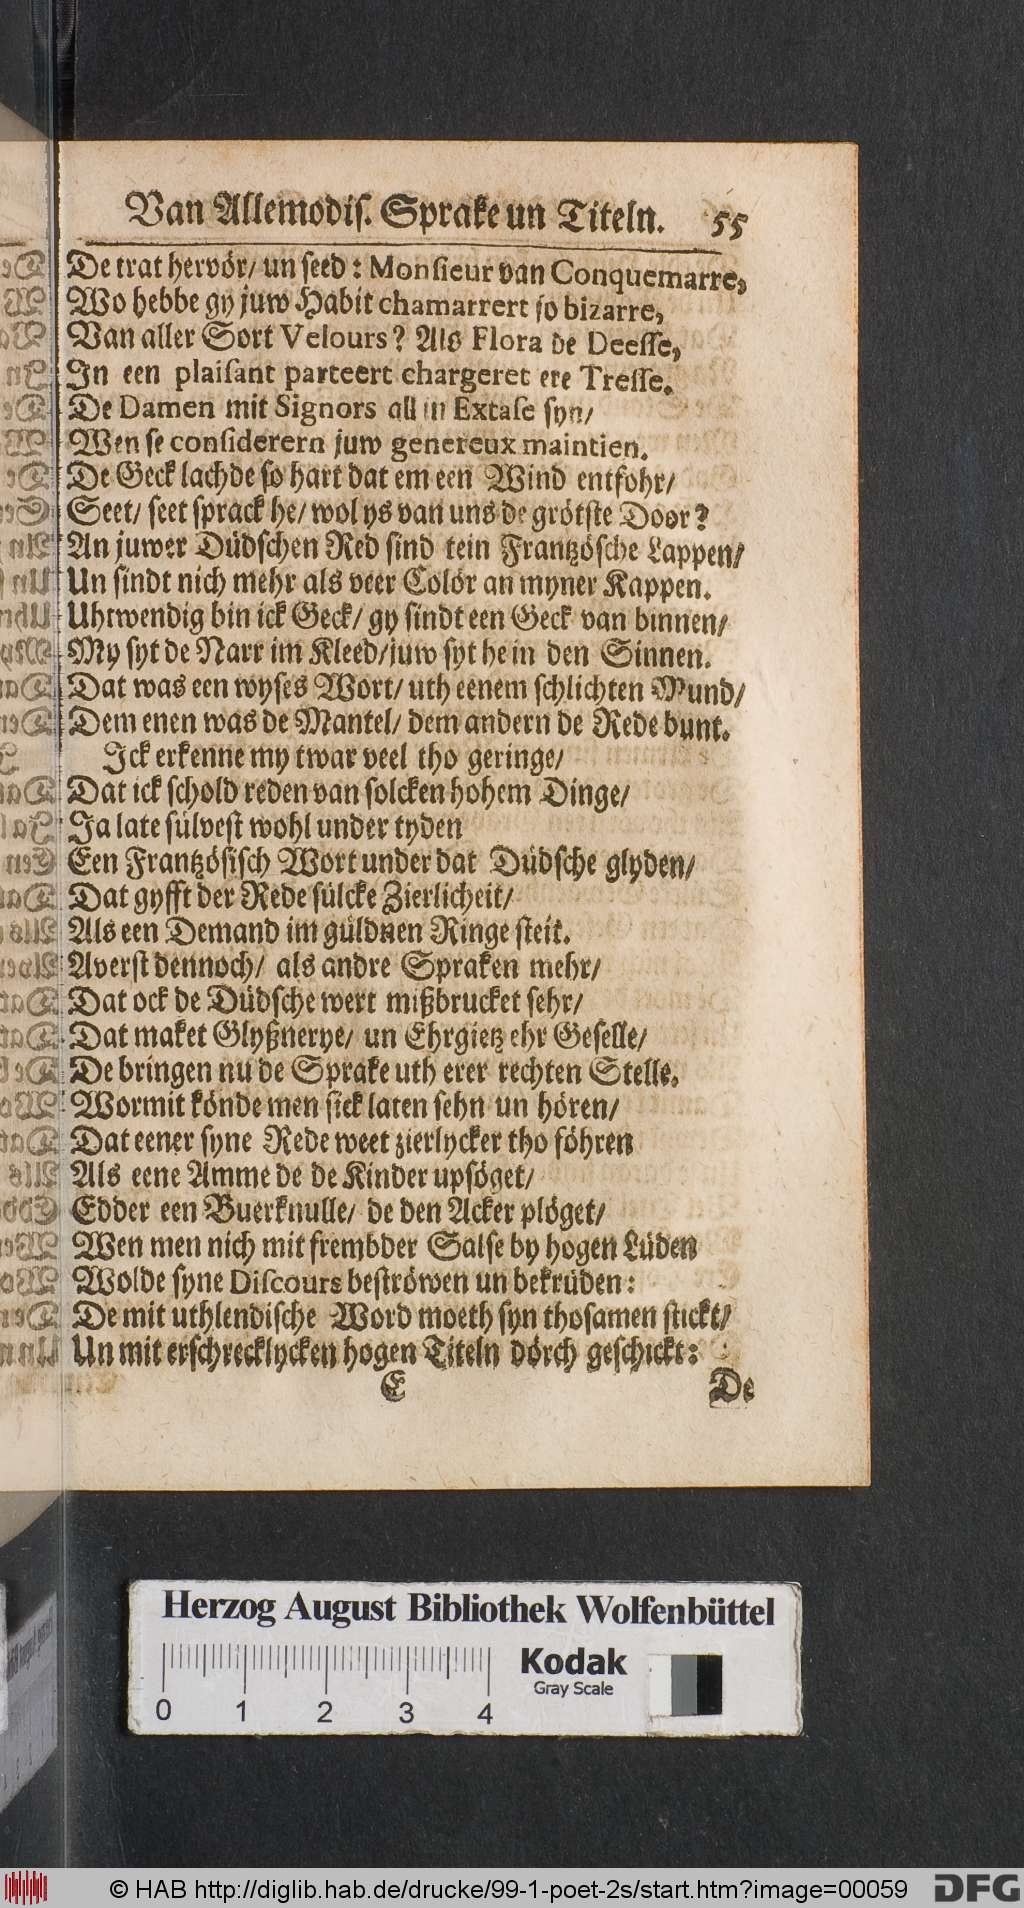 Van Allemodiſ. Sprake un Titeln. 55
De trat hervör/ un ſeed: Monſieur van Conquemarre,
Wo hebbe gy juw Habit chamarrert ſo bizarre,
Van aller Sort Velours? Als Flora de Deeſſe,
In een plaiſant parteert chargeret ere Treſſe.
De Damen mit Signors all in Extaſe ſyn/
Wen ſe conſiderern juw genereux maintien.
De Geck lachde ſo hart dat em een Wind entfohr/
Seet/ ſeet ſprack he/ wol ys van uns de grötſte Door?
An juwer Düdſchen Red ſind tein Frantzöſche Lappen/
Un ſindt nich mehr als veer Colör an myner Kappen.
Uhtwendig bin ick Geck/ gy ſindt een Geck van binnen/
My ſyt de Narr im Kleed/ juw ſyt he in den Sinnen.
Dat was een wyſes Wort/ uth eenem ſchlichten Mund/
Dem enen was de Mantel/ dem andern de Rede bunt.
Ick erkenne my twar veel tho geringe/
Dat ick ſchold reden van ſolcken hohem Dinge/
Ja late ſülveſt wohl under tyden
Een Frantzöſiſch Wort under dat Düdſche glyden/
Dat gyfft der Rede ſülcke Zierlicheit/
Als een Demand im güldnen Ringe ſteit.
Averſt dennoch/ als andre Spraken mehr/
Dat ock de Düdſche wert mißbrucket ſehr/
Dat maket Glyßnerye/ un Ehrgietz ehr Geſelle/
De bringen nu de Sprake uth erer rechten Stelle.
Wormit könde men ſick laten ſehn un hören/
Dat eener ſyne Rede weet zierlycker tho föhren
Als eene Amme de de Kinder upſöget/
Edder een Buerknulle/ de den Acker plöget/
Wen men nich mit frembder Salſe by hogen Lüden
Wolde ſyne Diſcours beſtröwen un bekrüden:
De mit uthlendiſche Word moeth ſyn thoſamen ſtickt/
Un mit erſchrecklycken hogen Titeln dörch geſchickt:
E De
Herzog August Bibliothek Wolfenbüttel
Kodak
Gray Scale
0 1 2 3 4
© HAB http://diglib.hab.de/drucke/99-1-poet-2s/start.htm?image=00059 DFG